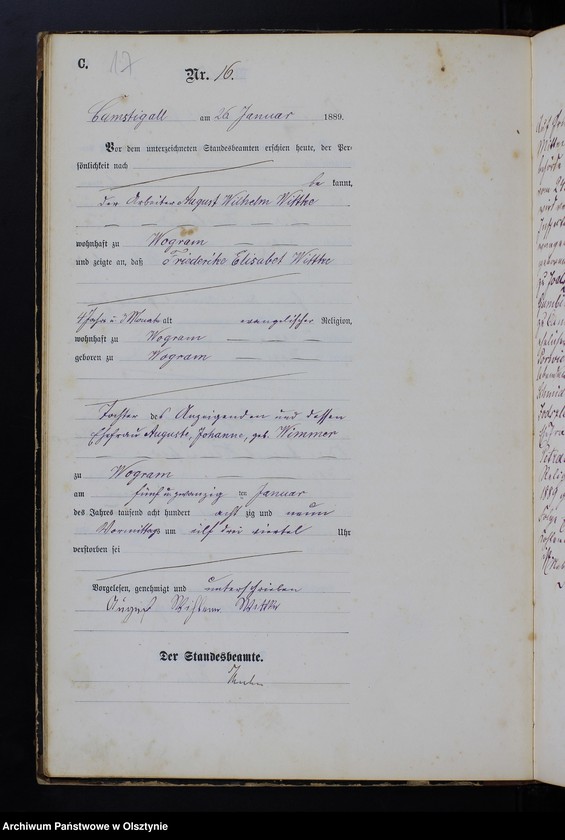 C.
17
Nr. 16.
Camstigall am 26 Januar 1889.
Vor dem unterzeichneten Standesbeamten erschien heute, der Per-
sönlichkeit nach
be kannt,
der Arbeiter August Wilhelm Wittke
wohnhaft zu Wogram
und zeigte an, daß Friederike Elisabet Wittke
4 Jahr u 3 Monate alt evangelischer Religion,
wohnhaft zu Wogram
geboren zu Wogram
Tochter des Anzeigenden und dessen
Ehefrau Auguste, Johanne, geb. Wimmer
zu Wogram
am fünf u zwanzig ten Januar
des Jahres tausend acht hundert acht zig und neun
Vormittags um eilf drei viertel Uhr
verstorben sei
Vorgelesen, genehmigt und unterschrieben
August Wilhelm Wittke
Der Standesbeamte.
Archiwum Państwowe w Olsztynie